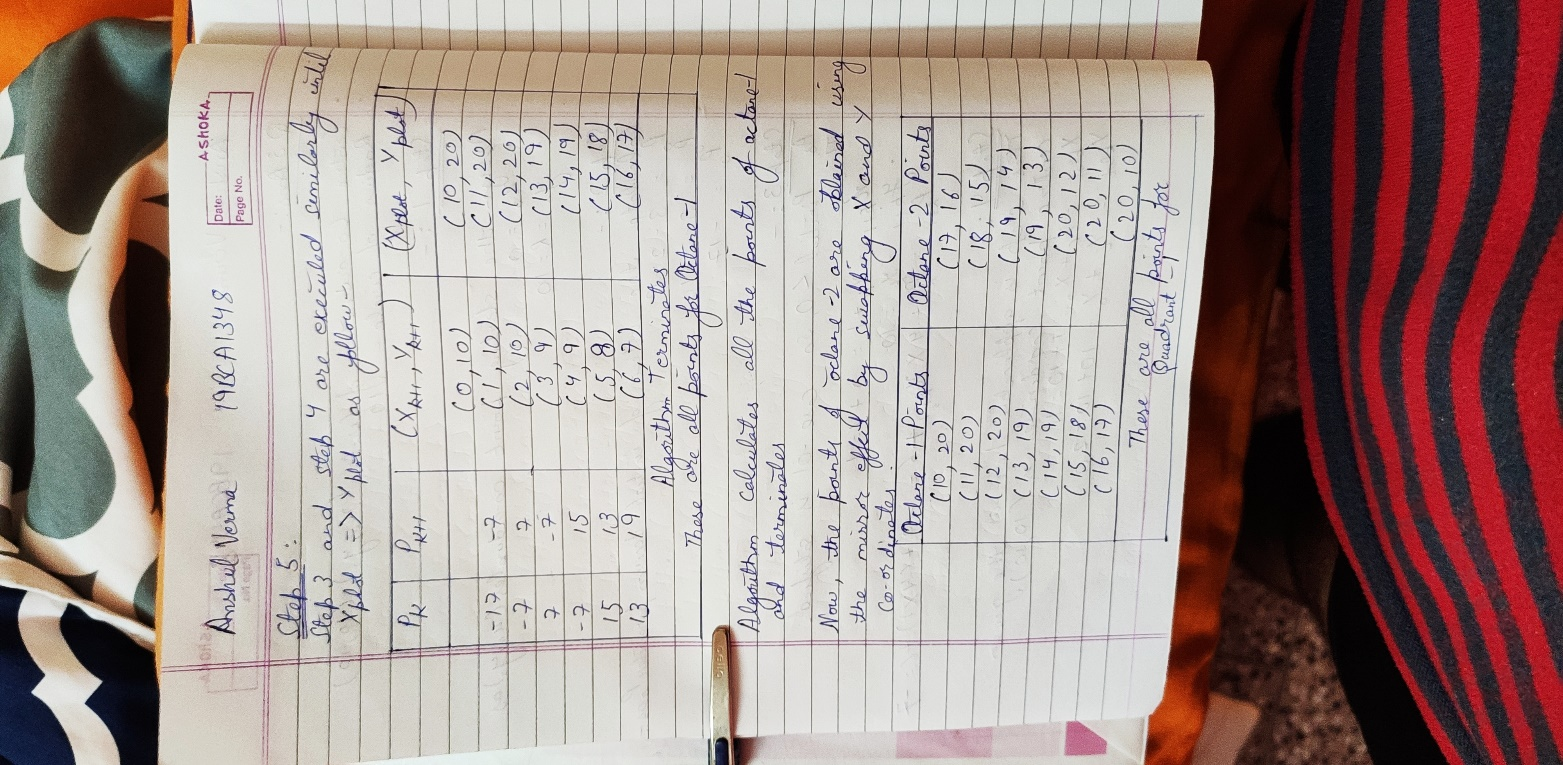 ASHOKA
Date:
Page No.
Anshul Verma 19BCA1348
Step 5:
Step 3 and step 4 are executed similarly until
Xplot => Yplot as follow-
PK PK+1 (XK+1, YK+1) (Xplot, Yplot)
(0, 10) (10, 20)
-17 -7 (1, 10) (11, 20)
-7 7 (2, 10) (12, 20)
7 -7 (3, 9) (13, 19)
-7 15 (4, 9) (14, 19)
15 13 (5, 8) (15, 18)
13 19 (6, 7) (16, 17)
Algorithm Terminates
These are all points for Octane-1
Algorithm calculates all the points of octane-1
and terminates
Now, the points of octane-2 are obtained using
the mirror effect by swapping X and Y
Co-ordinates.
Octane-1 Points Octane-2 Points
(10, 20) (17, 16)
(11, 20) (18, 15)
(12, 20) (19, 14)
(13, 19) (19, 13)
(14, 19) (20, 12)
(15, 18) (20, 11)
(16, 17) (20, 10)
These are all points for
Quadrant-1
cello